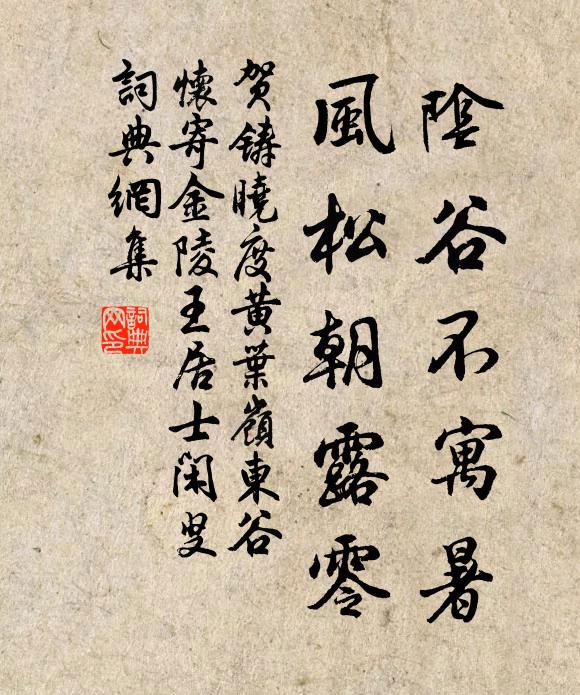 陰谷不寓暑
風松朝露零
賀鑄曉度黃葉嶺東谷
懷寄金陵王居士閑叟
詞典網集
詞典網印